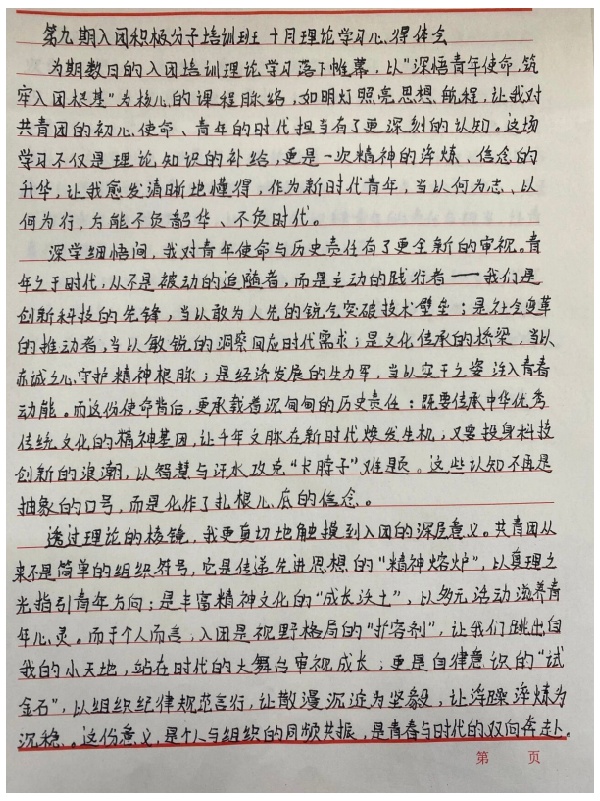 第九期入团积极分子培训班十月理论学习心得体会
为期数日的入团培训理论学习落下帷幕，以“深悟青年使命，筑
牢入团根基”为核心的课程脉络，如明灯照亮思想航程，让我对
共青团的初心使命、青年的时代担当有了更深刻的认知。这场
学习不仅是理论知识的补给，更是一次精神的淬炼、信念的
升华，让我愈发清晰地懂得，作为新时代青年，当以何为志、以
何为行，方能不负韶华、不负时代。
深学细悟间，我对青年使命与历史责任有了更全新的审视。青
年之于时代，从不是被动的追随者，而是主动的践行者——我们是
创新科技的先锋，当以敢为人先的锐气突破技术壁垒；是社会变革
的推动者，当以敏锐的洞察回应时代需求；是文化传承的桥梁，当以
赤诚之心守护精神根脉；是经济发展的生力军，当以实干之姿注入青春
动能。而这份使命背后，更承载着沉甸甸的历史责任：既要传承中华优秀
传统文化的精神基因，让千年文脉在新时代焕发生机；又要投身科技
创新的浪潮，以智慧与汗水攻克“卡脖子”难题。这些认知不再是
抽象的口号，而是化作了扎根心底的信念。
透过理论的棱镜，我更真切地触摸到入团的深层意义。共青团从
来不是简单的组织符号，它是传递先进思想的“精神熔炉”，以真理之
光指引青年方向；是丰富精神文化的“成长沃土”，以多元活动滋养青
年心灵。而于个人而言，入团是视野格局的“扩容剂”，让我们跳出自
我的小天地，站在时代的大舞台审视成长；更是自律意识的“试
金石”，以组织纪律规范言行，让散漫沉淀为坚毅，让浮躁淬炼为
沉稳。这份意义，是个人与组织的同频共振，是青春与时代的双向奔赴。
第 页